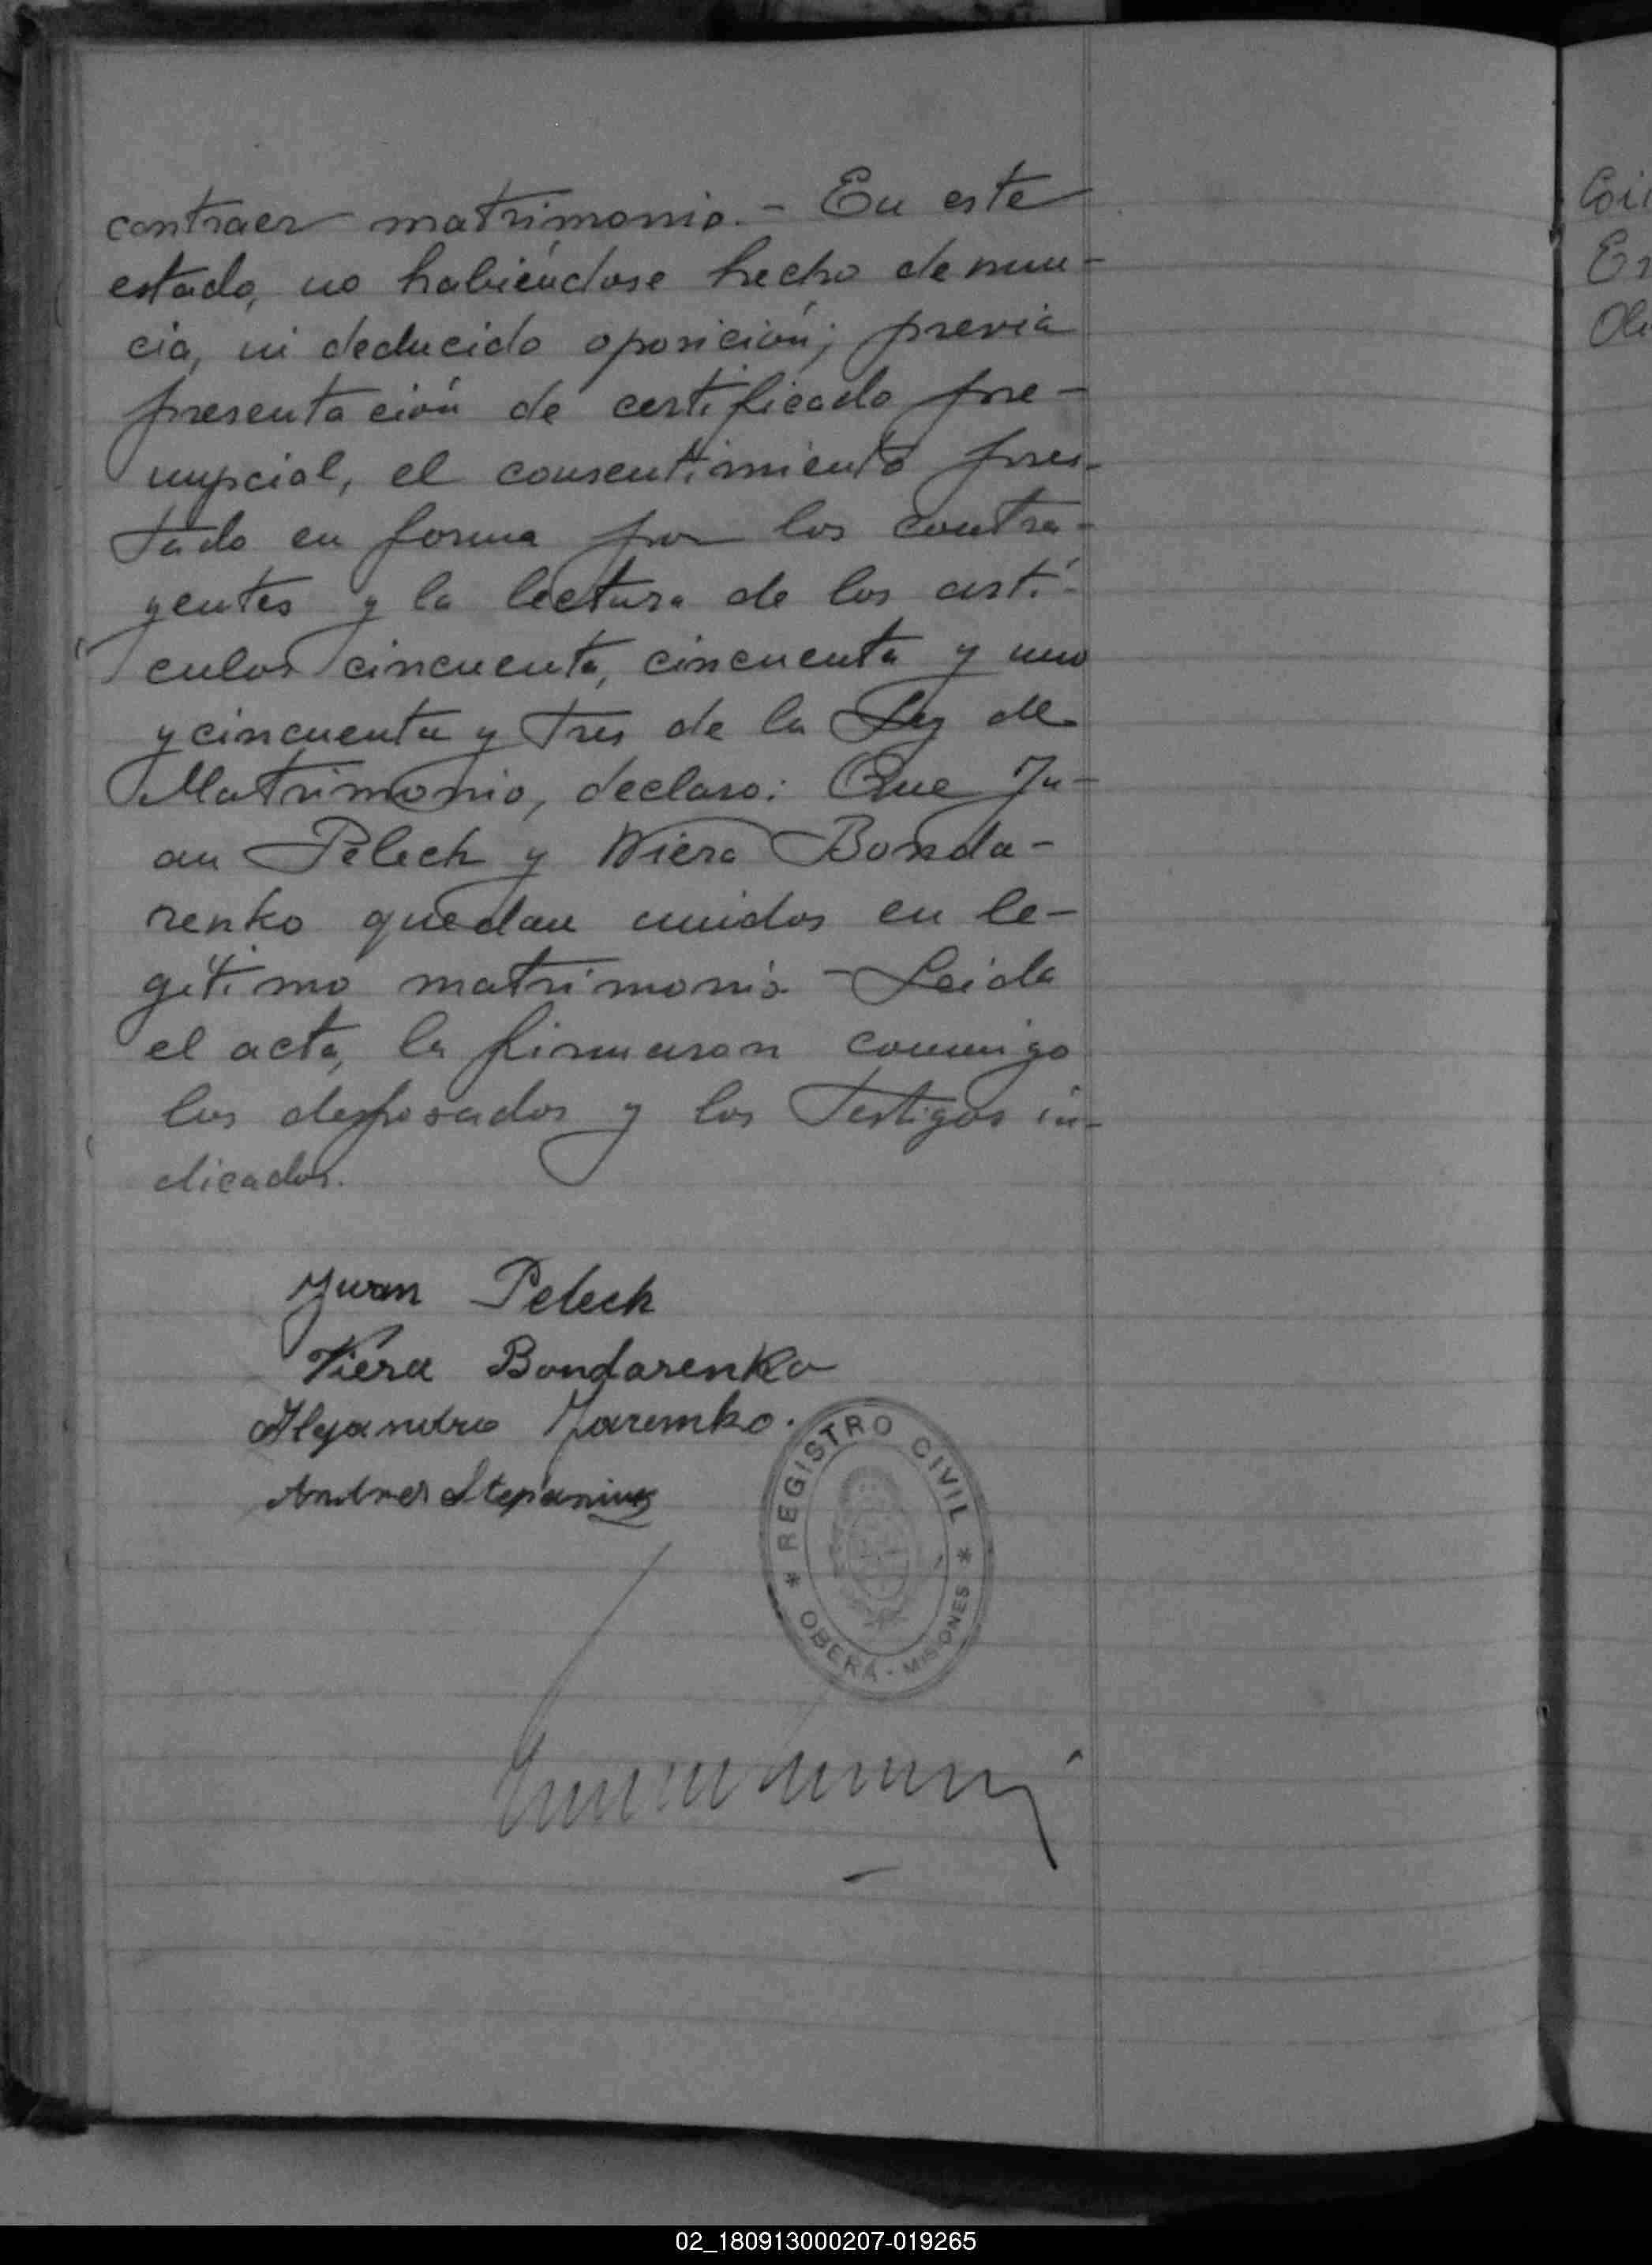 contraer matrimonio.- En este
estado, no habiéndose hecho denun-
cia, ni deducido oposición; previa
presentación de certificado pre-
nupcial, el consentimiento pres-
tado en forma por los contra-
yentes y la lectura de los artí-
culos cincuenta, cincuenta y uno
y cincuenta y tres de la Ley de
Matrimonio, declaro: Que Ju-
an Pelech y Wiera Bonda-
renko quedan unidos en le-
gítimo matrimonio - Leida
el acta, la firmaron conmigo
los desposados y los testigos in-
dicados.
Juan Pelech
Viera Bondarenko
Alejandro Jaremko.
Andres
REGISTRO CIVIL
* OBERÁ - MISIONES *
Coi
Er
Ole
02_180913000207-019265